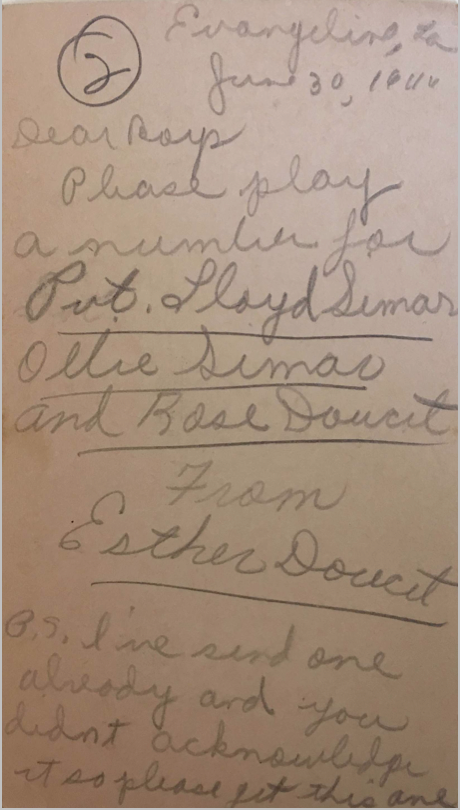 2
Evangeline, La
June 30, 
Dear Boys
Please play
a number for
Pvt. Lloyd Simar
Ollie Simar
and Rose Doucet
From
Esther Doucet
P.S. I've send one
already and you
didnt acknowledge
it so please get this one